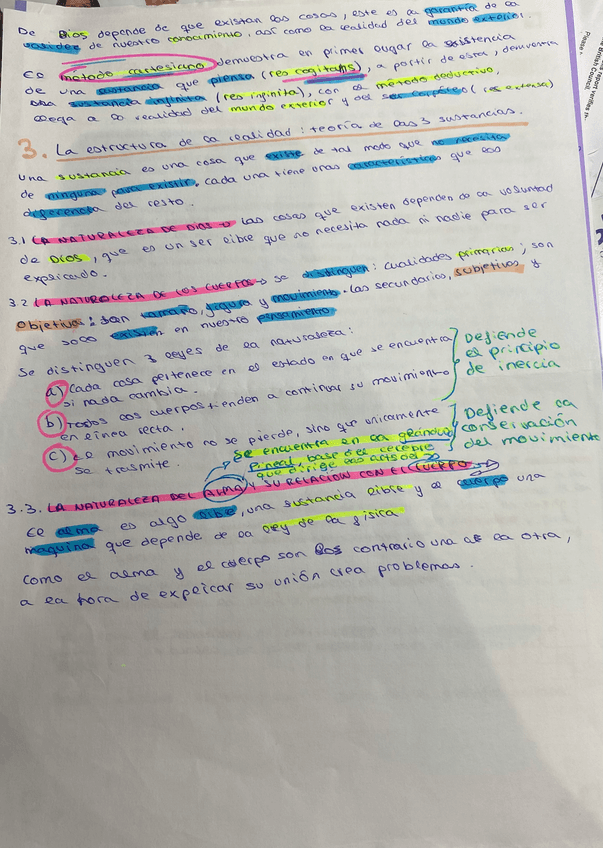 De Dios depende de que existan las cosas, este es la garantía de la
validez de nuestro conocimiento, así como la realidad del mundo exterior.
El método cartesiano demuestra en primer lugar la existencia
de una sustancia que piensa (res cogitans), a partir de esta, demuestra
una sustancia infinita (res infinita), con el método deductivo,
llega a la realidad del mundo exterior y del ser corpóreo (res extensa)
3. La estructura de la realidad: teoría de las 3 sustancias.
Una sustancia es una cosa que existe de tal modo que no necesita
de ninguna para existir. cada una tiene unas características que las
diferencia del resto.
3.1 LA NATURALEZA DE DIOS → las cosas que existen dependen de la voluntad
de Dios, que es un ser libre que no necesita nada ni nadie para ser
explicado.
3.2 LA NATURALEZA DE LOS CUERPOS → se distinguen: cualidades primarias; son
objetivas: son tamaño, figura y movimiento. Las secundarias, subjetivas y
que solo existen en nuestro pensamiento
Se distinguen 3 leyes de la naturaleza:
a) Cada cosa pertenece en el estado en que se encuentra
si nada cambia.
b) Todos los cuerpos tienden a continuar su movimiento
en línea recta.
Defiende
el principio
de inercia
c) el movimiento no se pierde, sino que unicamente
se trasmite.
Defiende la
conservación
del movimiento
Se encuentra en la glándula
pineal, base del cerebro
que dirige los actos del
3.3. LA NATURALEZA DEL ALMA Y SU RELACIÓN CON EL CUERPO
El alma es algo libre, una sustancia libre y el cuerpo una
maquina que depende de la ley de la fisica
como el alma y el cuerpo son los contrario una a la otra,
a la hora de explicar su unión crea problemas.